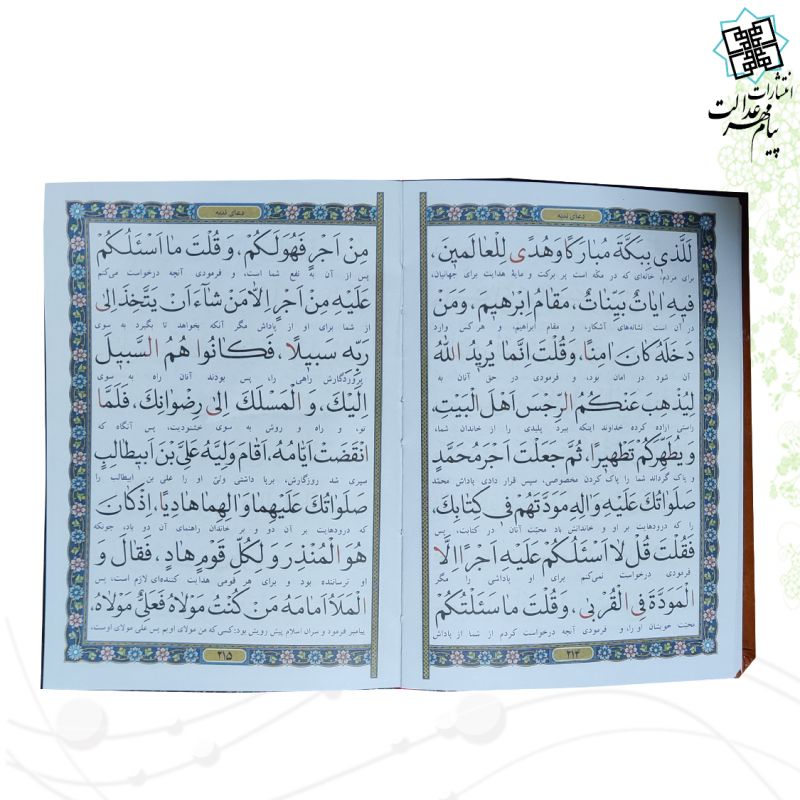 انتشارات
پیام مهر عدالت
دعای ندبه
لَلَّذى بِبَكَّةَ مُبارَكًا وَهُدًى لِلْعالَمينَ،
برای مردم! خانه‌ای که در مکّه است پر برکت و مایۀ هدایت برای جهانیان،
فيهِ اياتٌ بَيِّناتٌ، مَقامُ اِبْرهيمَ، وَمَنْ
در آن است نشانه‌های آشکار، و مقام ابراهیم، و هر کس وارد
دَخَلَهُ كانَ امِنًا، وَقُلْتَ اِنَّما يُريدُ اللّٰهُ
آن شود در امان بود، و فرمودی در حق آنان به
لِيُذْهِبَ عَنْكُمُ الرِّجْسَ اَهْلَ الْبَيْتِ،
راستی اراده کرده خداوند اینکه ببرد پلیدی را از خاندان شما،
وَ يُطَهِّرَكُمْ تَطْهيرًا، ثُمَّ جَعَلْتَ اَجْرَ مُحَمَّدٍ
و پاک گرداند شما را پاک کردن مخصوصی، سپس قرار دادی پاداش محمّد
صَلَواتُكَ عَلَيْهِ وَالِهِ مَوَدَّتَهُمْ فى كِتابِكَ،
را که درودهایت بر او و خاندانش باد محبّت آنان در کتابت، پس
فَقُلْتَ قُلْ لا اَسْئَلُكُمْ عَلَيْهِ اَجْرًا اِلَّا
فرمودی درخواست نمی‌کنم برای او پاداشی را مگر
الْمَوَدَّةَ فِى الْقُرْبى، وَقُلْتَ ما سَئَلْتُكُمْ
محبّت خویشان او را، و فرمودی آنچه درخواست کردم از شما از پاداش
۲۱۴
دعای ندبه
مِنْ اَجْرٍ فَهُوَلَكُمْ، وَ قُلْتَ ما اَسْئَلُكُمْ
پس از آن به نفع شما است، و فرمودی آنچه درخواست می‌کنم
عَلَيْهِ مِنْ اَجْرٍ اِلّا مَنْ شآءَ اَنْ يَتَّخِذَ اِلى
از شما برای او از پاداش مگر آنکه بخواهد تا بگیرد به سوی
رَبِّه سَبيلًا، فَكانُوا هُمُ السَّبيلَ
پروردگارش راهی را، پس بودند آنان راه به سوی
اِلَيْكَ، وَ الْمَسْلَكَ اِلى رِضْوانِكَ، فَلَمَّا
تو، و راه و روش به سوی خشنودیت، پس آنگاه که
انْقَضَتْ اَيّامُهُ، اَقامَ وَلِيَّهُ عَلِىَّ بْنَ اَبيطالِبٍ
سپری شد روزگارش، برپا داشتی ولیّ او را علی بن ابیطالب را
صَلَواتُكَ عَلَيْهِما وَالِهِما هادِيًا، اِذْ كانَ
که درودهایت بر آن دو و بر خاندان راهنمای آن دو باد، چونکه
هُوَ الْمُنْذِرَ وَ لِكُلِّ قَوْمٍ هادٍ، فَقالَ وَ
او ترساننده بود و برای هر قومی هدایت کننده‌ای لازم است، پس
الْمَلَأُ اَمامَهُ مَنْ كُنْتُ مَوْلاهُ فَعَلِىٌّ مَوْلاهُ،
پیامبر فرمود و سران اسلام پیش رویش بود: کسی که من مولای اویم پس علی مولای اوست،
۲۱۵